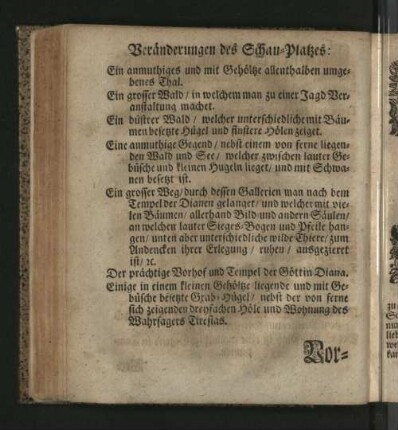 Veränderungen des Schau-Platzes:
Ein anmuthiges und mit Gehöltze allenthalben umge-
benes Thal.
Ein grosser Wald / in welchem man zu einer Jagd Ver-
anstaltung machet.
Ein düstrer Wald / welcher unterschiedliche mit Bäu-
men besetzte Hügel und finstere Hölen zeiget.
Eine anmuthige Gegend / nebst einem von ferne liegen-
den Wald und See / welcher zwischen lauter Ge-
büsche und kleinen Hugeln lieget / und mit Schwa-
nen besetzt ist.
Ein grosser Weg / durch dessen Gallerien man nach dem
Tempel der Dianen gelanget / und welcher mit vie-
len Bäumen / allerhand Bild und andern Säulen /
an welchen lauter Sieges-Bogen und Pfeile han-
gen / unten aber unterschiedliche wilde Thiere / zum
Andencken ihrer Erlegung / ruhen / ausgezieret
ist / ꝛc.
Der prächtige Vorhof und Tempel der Göttin Diana.
Einige in einem kleinen Gehöltze liegende und mit Ge-
büsche besetzte Grab-Hügel / nebst der von ferne
sich zeigenden dreyfachen Höle und Wohnung des
Wahrsagers Tiresias.
Vor-